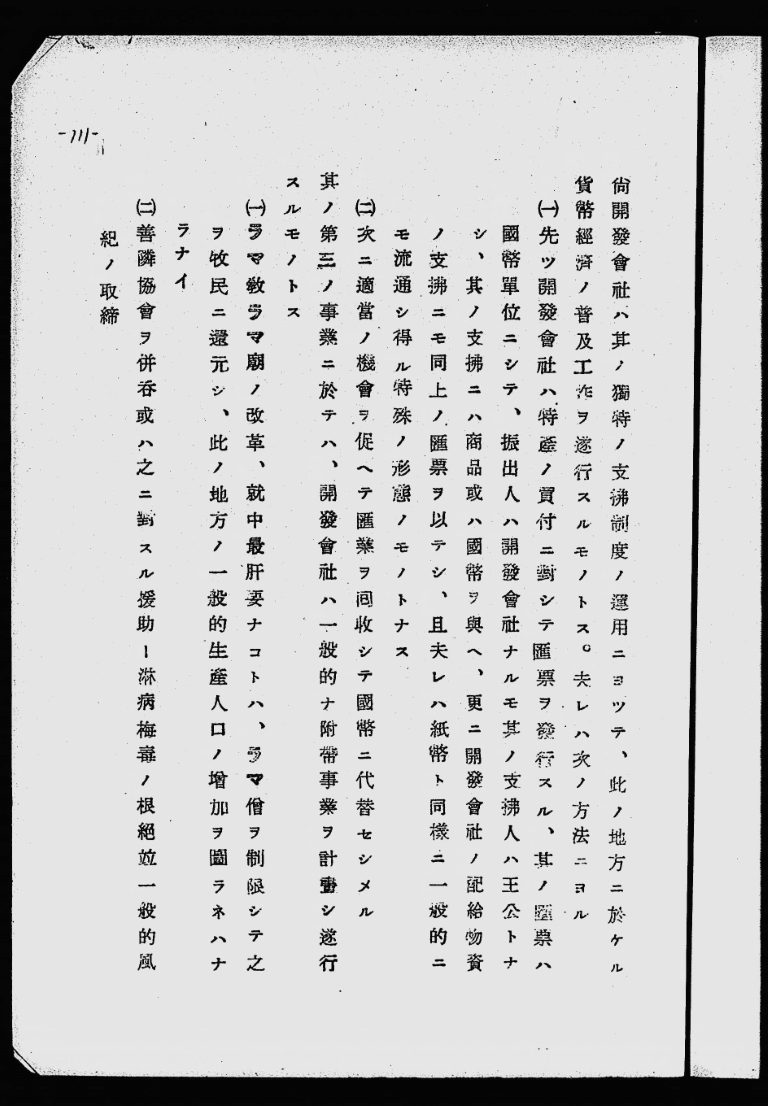 -111-
尙開發會社ハ其ノ獨特ノ支拂制度ノ運用ニヨツテ、此ノ地方ニ於ケル
貨幣經濟ノ普及工作ヲ遂行スルモノトス。夫レハ次ノ方法ニヨル
㈠先ツ開發會社ハ特產ノ買付ニ對シテ匯票ヲ發行スル、其ノ匯票ハ
國幣單位ニシテ、振出人ハ開發會社ナルモ其ノ支拂人ハ王公トナ
シ、其ノ支拂ニハ商品或ハ國幣ヲ與ヘ、更ニ開發會社ノ配給物資
ノ支拂ニモ同上ノ匯票ヲ以テシ、且夫レハ紙幣ト同樣ニ一般的ニ
モ流通シ得ル特殊ノ形態ノモノトナス
㈡次ニ適當ノ機會ヲ促ヘテ匯業ヲ囘收シテ國幣ニ代替セシメル
其ノ第三ノ事業ニ於テハ、開發會社ハ一般的ナ附帶事業ヲ計畫シ遂行
スルモノトス
㈠ラマ敎ラマ廟ノ改革、就中最肝要ナコトハ、ラマ僧ヲ制限シテ之
ヲ牧民ニ還元シ、此ノ地方ノ一般的生產人口ノ增加ヲ圖ラネハナ
ラナイ
㈡善隣協會ヲ併呑或ハ之ニ對スル援助ー淋病梅毒ノ根絕竝一般的風
紀ノ取締